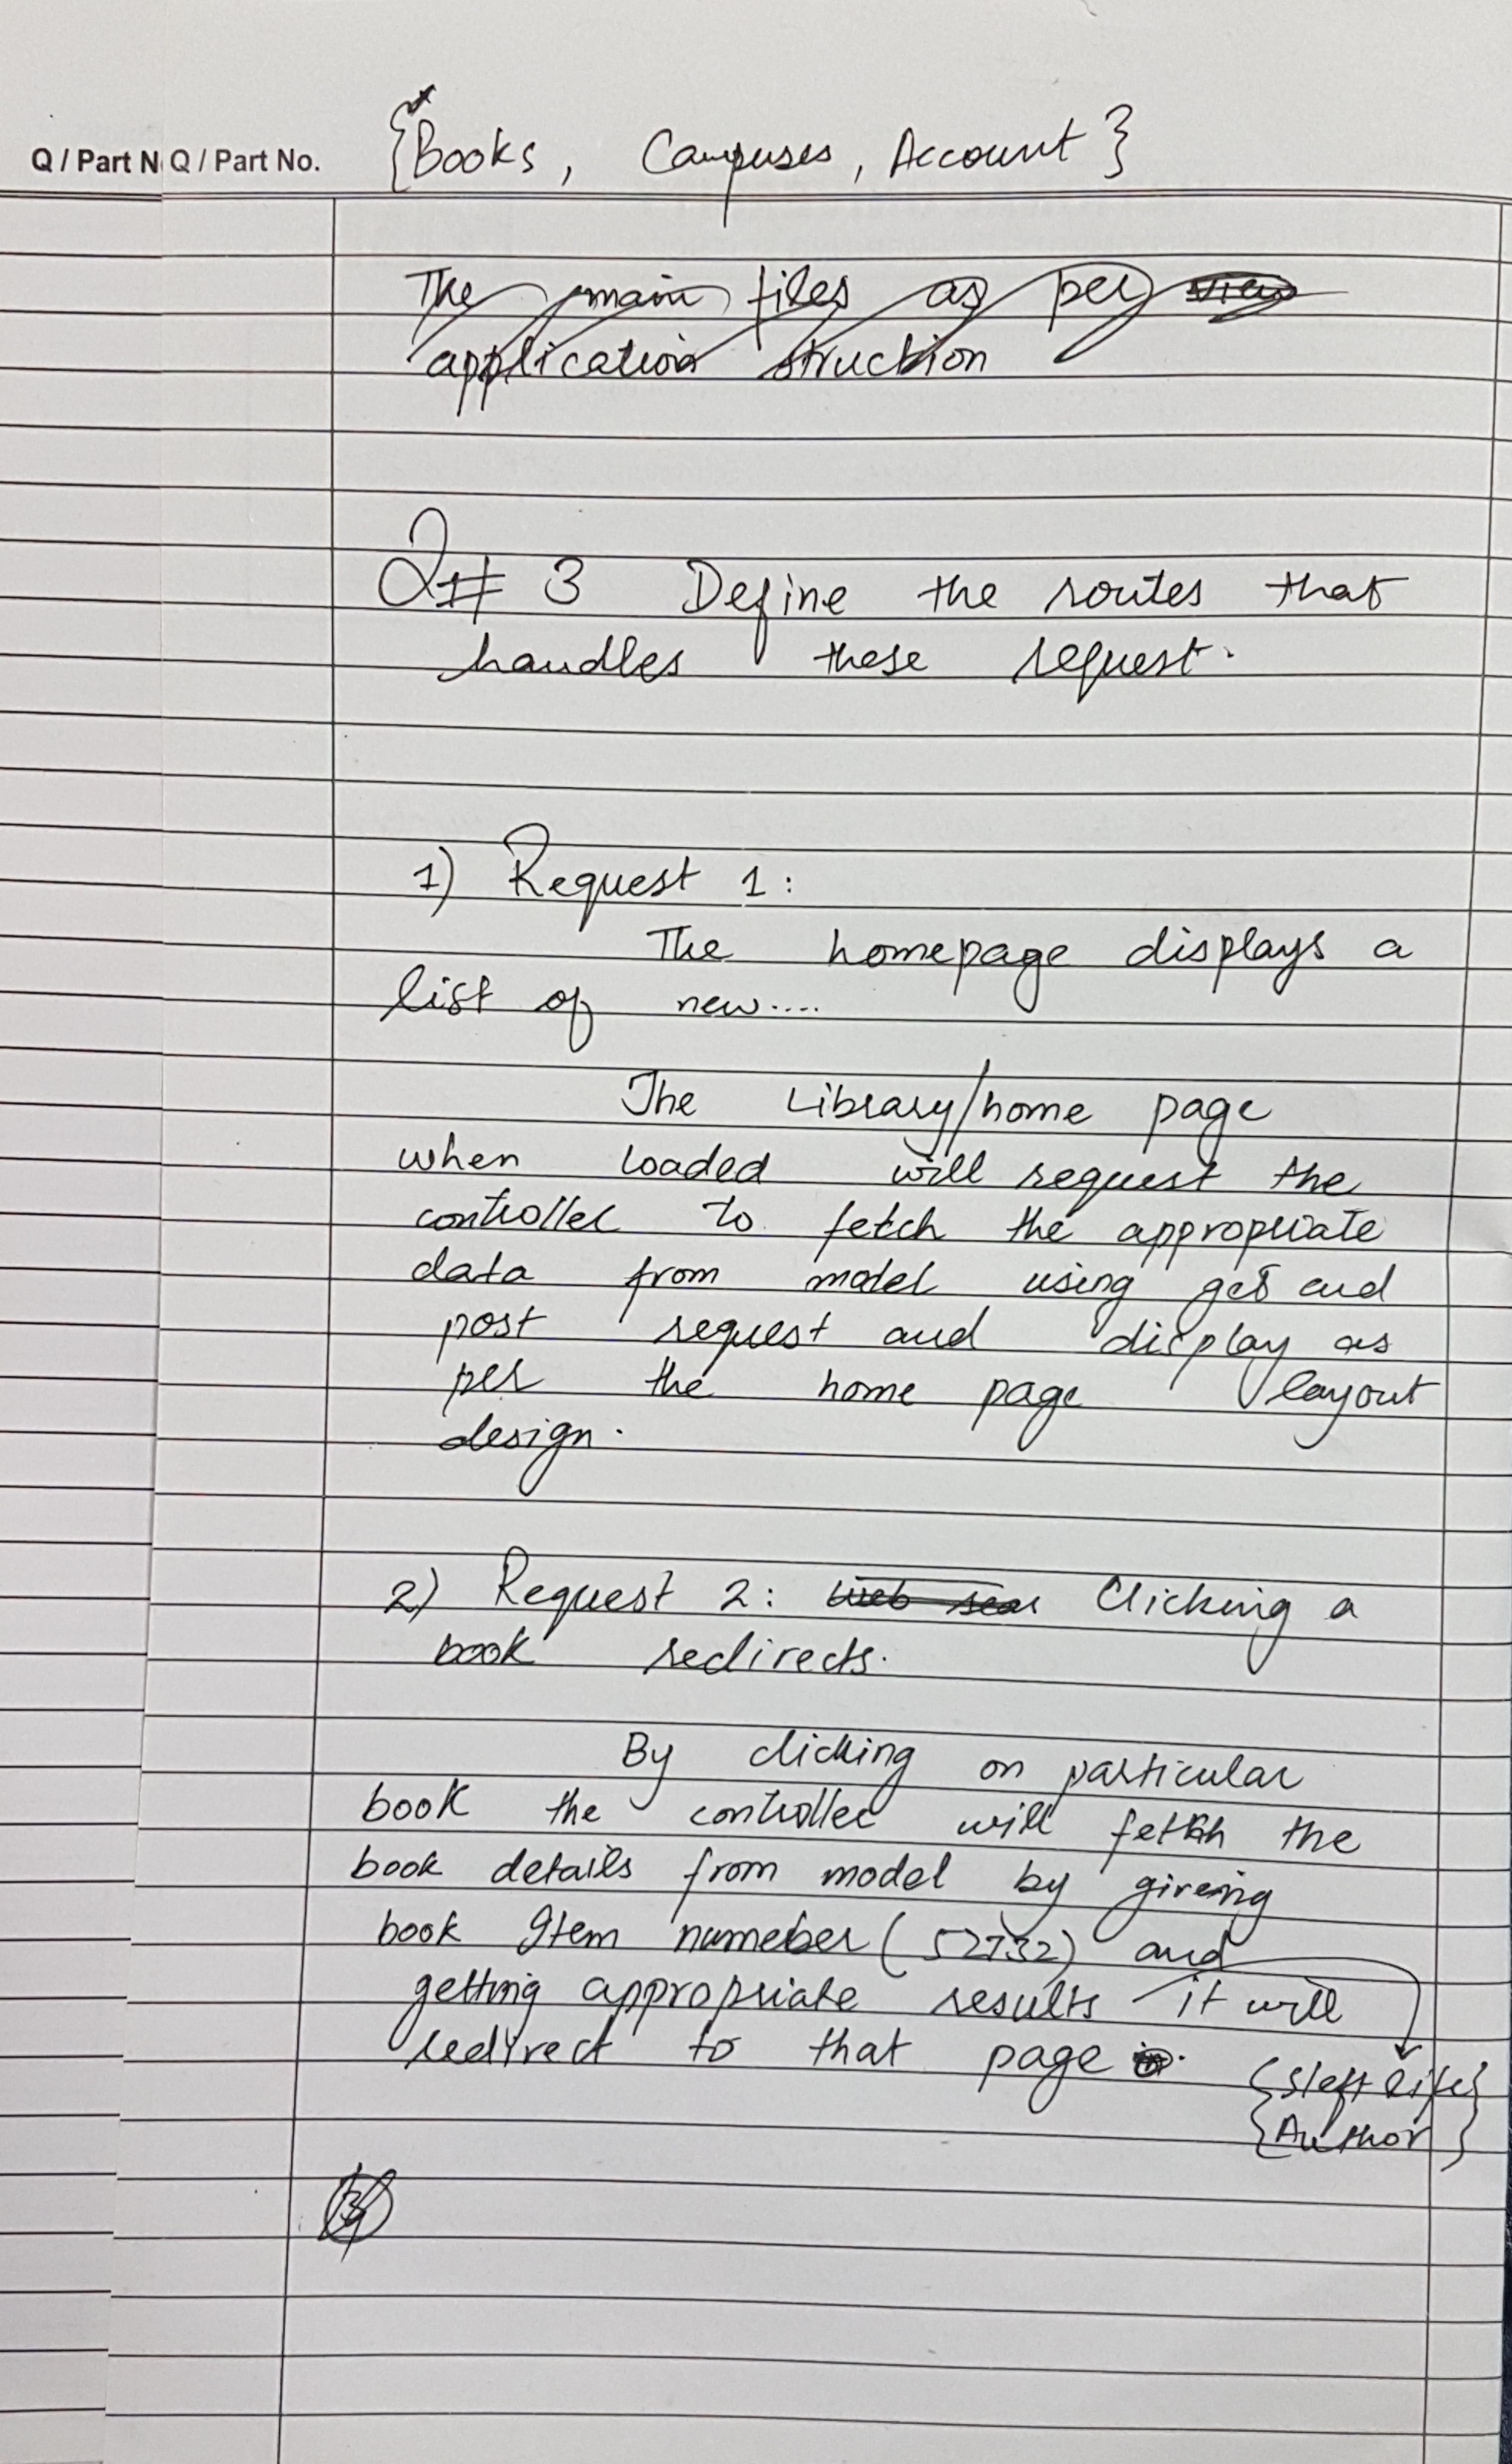 {Books, Campuses, Account}
Q / Part N Q / Part No.
The main files as per
application struction
Q# 3 Define the routes that
handles these request.
1) Request 1:
The homepage displays a
list of new....
The Library/home page
when loaded will request the
controller to fetch the appropriate
data from model using get and
post request and display as
per the home page layout
design.
2) Request 2: Clicking a
book redirects.
By clicking on particular
book the controller will fetch the
book details from model by giveing
book Item numeber (52732) and
getting appropriate results it will
redirect to that page
{Author}